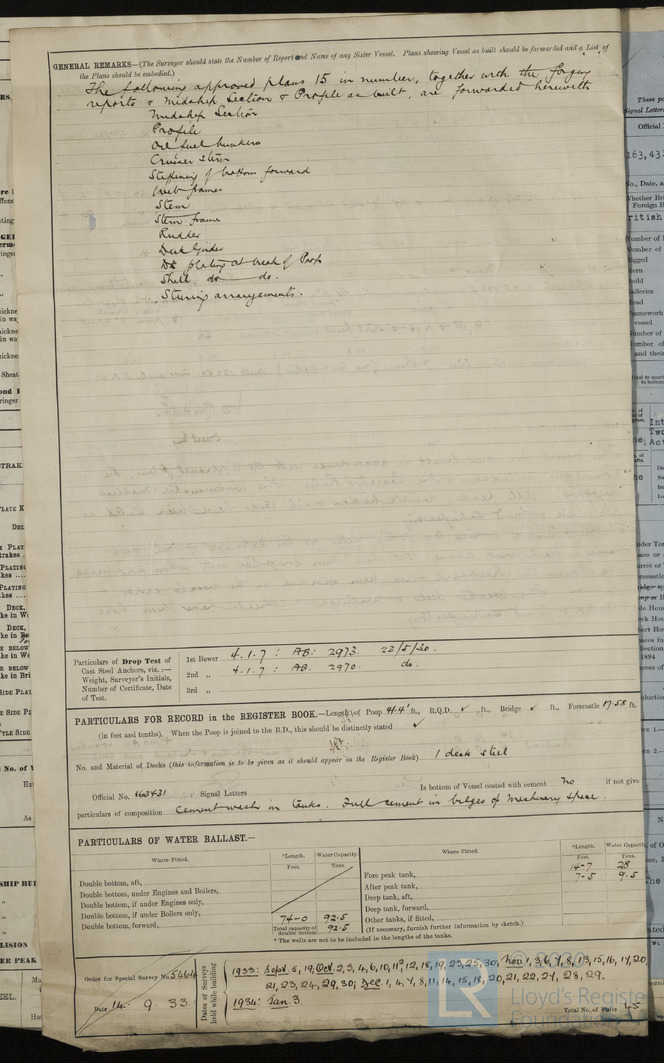 GENERAL REMARKS—(The Surveyor should state the Number of Report and Name of any Sister Vessel. Plans showing Vessel as built should be forwarded and a List of
the Plans should be embodied.)
The following approved plans 15 in number, together with the forging
reports & Midship Section & Profile as built, are forwarded herewith
Midship Section
Profile
Oil fuel bunkers
Cruiser Stern
Stiffening of bottom forward
Web frames
Stem
Stern frame
Rudder
Deck Girder
Dk plating at break of Poop
Shell do do.
Steering arrangements.
Particulars of Drop Test of
Cast Steel Anchors, viz.:—
Weight, Surveyor's Initials,
Number of Certificate, Date
of Test.
1st Bower 4.1.7 : AB: 2973. 23/5/30.
2nd „ 4.1.7 : AB. 2970. do.
3rd „
PARTICULARS FOR RECORD in the REGISTER BOOK.—Length of Poop 41.4 ft., R.Q.D. ✓ ft., Bridge ✓ ft., Forecastle 17.58 ft.
(in feet and tenths). When the Poop is joined to the B.D., this should be distinctly stated ✓
No. and Material of Decks (this information is to be given as it should appear in the Register Book) 1 deck steel
Official No. 163431 : Signal Letters Is bottom of Vessel coated with cement No if not give
particulars of composition Cement wash in tanks. Full cement in bilges of Machinery space.
PARTICULARS OF WATER BALLAST.—
Where Fitted. *Length. Water Capacity.
Feet. Tons.
Double bottom, aft,
Double bottom, under Engines and Boilers,
Double bottom, if under Engines only,
Double bottom, if under Boilers only,
Double bottom, forward, 74-0 92.5
Total capacity of double bottom 92.5
Where Fitted. *Length. Water Capacity
Feet. Tons.
Fore peak tank, 14-7 28
After peak tank, 7-5 9.5
Deep tank, aft,
Deep tank, forward,
Other tanks, if fitted,
(If necessary, furnish further information by sketch.)
* The wells are not to be included in the lengths of the tanks.
Order for Special Survey No. 5464
Date 14. 9. 33.
Dates of Surveys
held while building
1933: Sept. 5, 19, Oct. 2, 3, 4, 6, 10, 11, 12, 18, 19, 23, 25, 30, Nov 1, 3, 6, 7, 8, 13, 15, 16, 17, 20,
21, 23, 24, 29, 30; Dec 1, 4, 7, 8, 11, 14, 15, 18, 20, 21, 22, 27, 28, 29.
1934: Jan 3.
Total No. of Visits 45
LR
Lloyd's Register
Foundation